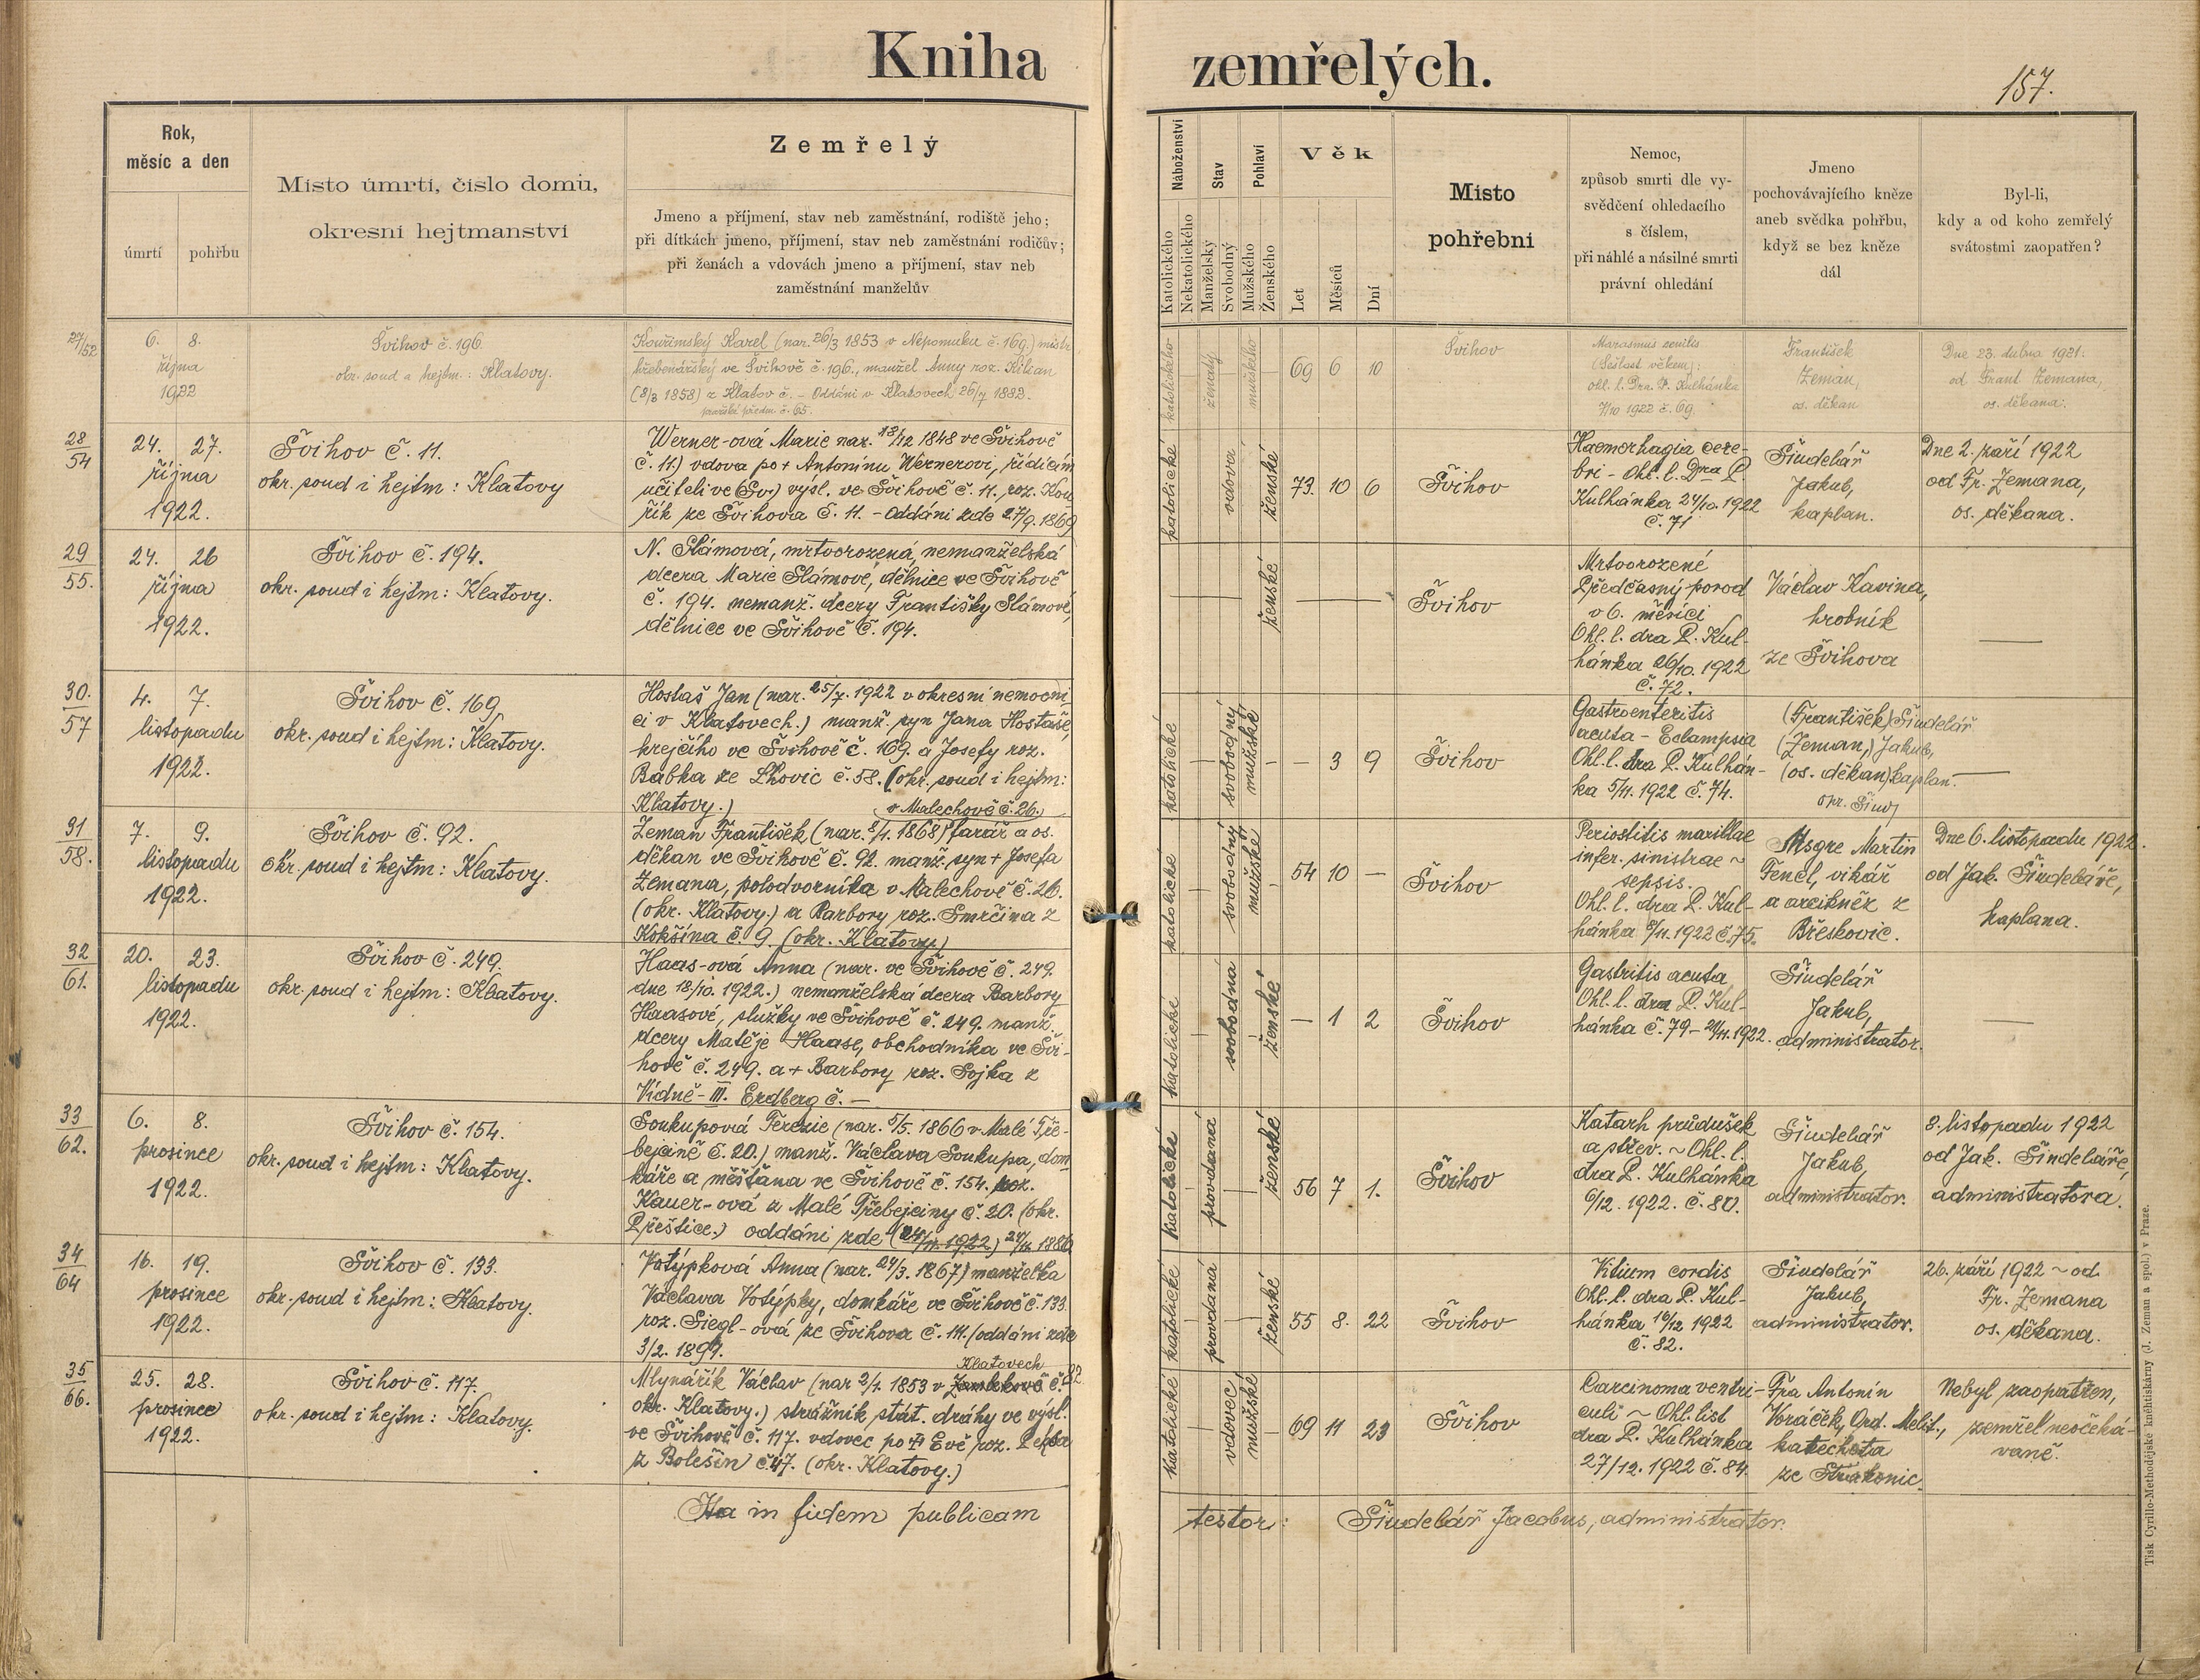 Kniha zemřelých.
157.
Rok,
měsíc a den
úmrtí
pohřbu
Místo úmrtí, číslo domu,
okresní hejtmanství
Zemřelý
Jmeno a příjmení, stav neb zaměstnání, rodiště jeho;
při dítkách jmeno, příjmení, stav neb zaměstnání rodičův;
při ženách a vdovách jmeno a příjmení, stav neb
zaměstnání manželův
Náboženství
Katolického
Nekatolického
Stav
Manželský
Svobodný
Pohlaví
Mužského
Ženského
Věk
Let
Měsíců
Dní
Místo
pohřební
Nemoc,
způsob smrti dle vy-
svědčení ohledacího
s číslem,
při náhlé a násilné smrti
právní ohledání
Jmeno
pochovávajícího kněze
aneb svědka pohřbu,
když se bez kněze
dál
Byl-li,
kdy a od koho zemřelý
svátostmi zaopatřen?
27/52
6. 8.
října
1922
Švihov č. 196.
okr. soud a hejtm.: Klatovy.
Kowřimský Karel (nar. 26/3 1853 v Nepomuku č. 169.) mistr
hřebenářský ve Švihově č. 196., manžel Anny roz. Kilian
(8/3 1858) z Klatov č. - Oddáni v Klatovech 26/7 1882.
pražské předm č. 65.
katolického
ženatý
mužského
69 6 10
Švihov
Marasmus senilis
(Sešlost věkem):
ohl. l. Dra. P. Kulhánka
7/10 1922 č. 69.
František
Zeman,
os. děkan
Dne 23. dubna 1921.
od Frant Zemana,
os. děkana.
28/54
24. 27.
října
1922.
Švihov č. 11.
okr. soud i hejtm: Klatovy
Werner-ová Marie nar. 18/12 1848 ve Švihově
č. 11.) vdova po + Antonínu Wernerovi, řídícím
učiteli ve (Šv.) výsl. ve Švihově č. 11. roz. Kou-
řík ze Švihova č. 11. - Oddáni zde 27/9. 1869
katolické
vdova
ženské
73. 10 6
Švihov
Haemorhagia cere-
bri - Ohl. l. Dra P.
Kulhánka 24/10. 1922
č. 71
Šindelář
Jakub,
kaplan.
Dne 2. září 1922
od Fr. Zemana,
os. děkana.
29/55.
24. 26
října
1922.
Švihov č. 194.
okr. soud i hejtm: Klatovy.
N. Slámová, mrtvorozená, nemanželská
dcera Marie Slámové, dělnice ve Švihově
č. 194. nemanž. dcery Františky Slámové,
dělnice ve Švihově č. 194.
ženské
Švihov
Mrtvorozené
Předčasný porod
v 6. měsíci
Ohl. l. dra P. Kul-
hánka 26/10. 1922
č. 72.
Václav Kavina,
hrobník
ze Švihova
—
30./57
4. 7.
listopadu
1922.
Švihov č. 169
okr. soud i hejtm: Klatovy.
Hostaš Jan (nar. 25/7. 1922 v okresní nemocni-
ci v Klatovech.) manž. syn Jana Hostaše,
krejčího ve Švihově č. 169. a Josefy roz.
Babka ze Lhovic č. 58. (okr. soud i hejtm:
Klatovy.)
katolické
svobodný
mužské
— 3 9
Švihov
Gastroenteritis
acuta - Eclampsia
Ohl. l. dra P. Kulhán-
ka 5/11. 1922 č. 74.
(František) Šindelář
(Zeman,) Jakub,
(os. děkan) kaplan.
opr. Šind
—
31/58.
7. 9.
listopadu
1922.
Švihov č. 92.
okr. soud i hejtm: Klatovy.
v Malechově č. 26.
Zeman František (nar. 8/1. 1868) farář a os.
děkan ve Švihově č. 92. manž. syn + Josefa
Zemana, polodvorníka v Malechově č. 26.
(okr. Klatovy.) a Barbory roz. Smrčina z
Kokšína č. 9. (okr. Klatovy)
katolické
svobodný
mužské
54 10 —
Švihov
Periostitis maxillae
infer. sinistrae ~
sepsis.
Ohl. l. dra P. Kul-
hánka 8/11. 1922 č. 75.
Msgre Martin
Fencl, vikář
a arcikněz z
Břeskovic.
Dne 6. listopadu 1922.
od Jak. Šindeláře,
kaplana.
32/61.
20. 23.
listopadu
1922.
Švihov č. 249.
okr. soud i hejtm: Klatovy.
Haas-ová Anna (nar. ve Švihově č. 249.
dne 18/10. 1922.) nemanželská dcera Barbory
Haasové, služky ve Švihově č. 249. manž.
dcery Matěje Haase, obchodníka ve Švi-
hově č. 249. a + Barbory roz. Sojka z
Vídně - III. Erdberg č. —
katolické
svobodná
ženské
— 1 2
Švihov
Gastritis acuta
Ohl. l. dra P. Kul-
hánka č. 79 - 21/11. 1922.
Šindelář
Jakub,
administrátor.
—
33/62.
6. 8.
prosince
1922.
Švihov č. 154.
okr. soud i hejtm: Klatovy.
Soukupová Terezie (nar. 5/5. 1866 v Malé Tře-
bejcině č. 20.) manž. Václava Soukupa, dom-
káře a měšťana ve Švihově č. 154. roz.
Kauer-ová z Malé Třebejciny č. 20. (okr.
Přeštice.) oddáni zde (24/11. 1922) 24/11. 1886
katolické
provdaná
ženské
56 7 1.
Švihov
Katarh průdušek
a střev. ~ Ohl. l.
dra P. Kulhánka
6/12. 1922. č. 80.
Šindelář
Jakub,
administrator.
8. listopadu 1922
od Jak. Šindeláře,
administratora.
34/64
16. 19.
prosince
1922.
Švihov č. 133.
okr. soud i hejtm: Klatovy.
Votýpková Anna (nar. 24/3. 1867) manželka
Václava Votýpky, domkáře ve Švihově č. 133.
roz. Siegl-ová ze Švihova č. 111. (oddáni zde
3/2. 1899.
katolické
provdaná
ženské
55 8. 22
Švihov
Vitium cordis
Ohl. l. dra P. Kul-
hánka 16/12 1922
č. 82.
Šindelář
Jakub,
administrator.
26. září 1922 ~ od
Fr. Zemana
os. děkana.
35/66.
25. 28.
prosince
1922.
Švihov č. 117.
okr. soud i hejtm: Klatovy.
Klatovech
Mlynářík Václav (nar 2/1. 1853 v č. 82
okr. Klatovy.) strážník stát. dráhy ve výsl.
ve Švihově č. 117. vdovec po + Evě roz.
z Bolešin č. 47. (okr. Klatovy.)
katolické
vdovec
mužské
69 11 23
Švihov
Carcinoma ventri-
culi ~ Ohl. list
dra P. Kulhánka
27/12. 1922 č. 84.
Fra Antonín
Voráček, Ord. Melit.,
katecheta
ze Strakonic.
Nebyl zaopatřen,
zemřel neočeká-
vaně.
Ita in fidem publicam
testor: Šindelář Jacobus, administrator.
Tisk Cyrillo-Methodějské knihtiskárny (J. Zeman a spol.) v Praze.